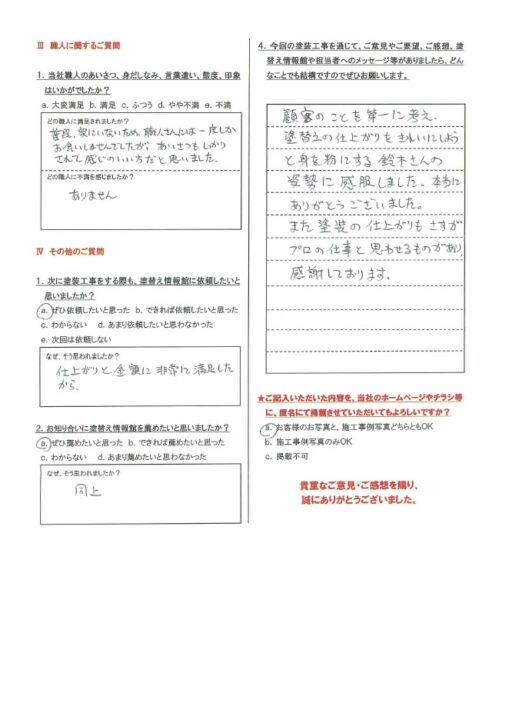 Ⅲ 職人に関するご質問
1. 当社職人のあいさつ、身だしなみ、言葉遣い、態度、印象
はいかがでしたか？
a. 大変満足 b. 満足 c. ふつう d. やや不満 e. 不満
どの職人に満足されましたか？
普段、家にいないため、職人さんには一度しか
お会いしませんでしたが、あいさつもしっかり
されて感じのいい方だと思いました。
どの職人に不満を感じましたか？
ありません
Ⅳ その他のご質問
1. 次に塗装工事をする際も、塗替え情報館に依頼したいと
思いましたか？
a. ぜひ依頼したいと思った b. できれば依頼したいと思った
c. わからない d. あまり依頼したいと思わなかった
e. 次回は依頼しない
なぜ、そう思われましたか？
仕上がりと金額に非常に満足した
から。
2. お知り合いに塗替え情報館を薦めたいと思いましたか？
a. ぜひ薦めたいと思った b. できれば薦めたいと思った
c. わからない d. あまり薦めたいと思わなかった
なぜ、そう思われましたか？
同上
4. 今回の塗装工事を通じて、ご意見やご要望、ご感想、塗
替え情報館や担当者へのメッセージ等がありましたら、どん
なことでも結構ですのでぜひお願いします。
顧客のことを第一に考え、
塗替えの仕上がりをきれいにしよう
と身を粉にする鈴木さんの
姿勢に感服しました。本当に
ありがとうございました。
また塗装の仕上がりもさすが
プロの仕事と思わせるものがあり、
感謝しております。
★ご記入いただいた内容を、当社のホームページやチラシ等
に、匿名にて掲載させていただいてもよろしいですか？
a. お客様のお写真と、施工事例写真どちらともOK
b. 施工事例写真のみOK
c. 掲載不可
貴重なご意見・ご感想を賜り、
誠にありがとうございました。